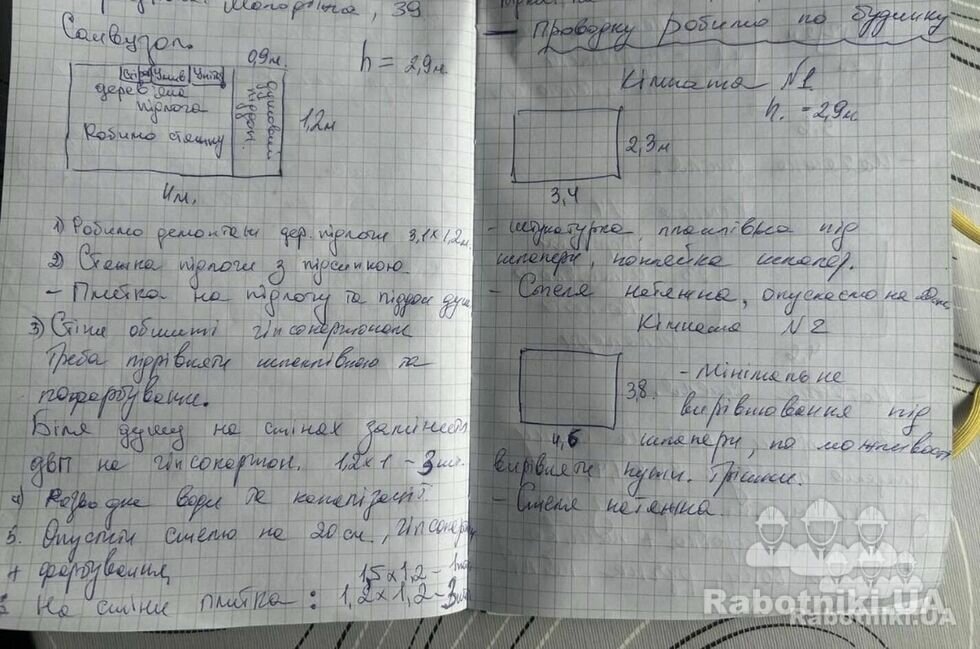 Молодіжна, 39
Санвузол.
0,9м.
h = 2,9м
Умив
Унітаз
дерев'яна
підлога
Робимо стяжку
душовий
піддон.
1,2м
4м.
1) Робимо демонтаж дер. підлоги 3,1x1,2м.
2) Стяжка підлоги з підсипкою
- Плитка на підлогу та піддон душ
3) Стіни обшиті гіпсокартоном
Треба підрівняти шпаклівкою та
пофарбувати.
Біля душу на стінах замінить
ДВП на гіпсокартон. 1,2x1 - 3шт.
4) Розводка води та каналізації
5. Опустити стелю на 20см, гіпсокартон
+ фарбування,
1,5x1,2 -
На стіни плитка : 1,2x1,2-3шт
- Проводку робимо по будинку
Кімната №1
h. = 2,9м
2,3м
3,4
- штукатурка, шпаклівка під
шпалери, поклейка шпалер.
- Стеля натяжна, опускаємо на 20см
Кімната №2
3,8.
4,6
- Мінімальне
вирівнювання під
шпалери, по можливості
вирівняти кути. Трішки.
- Стеля натяжна.
Rabotniki.UA
Rabotniki.UA